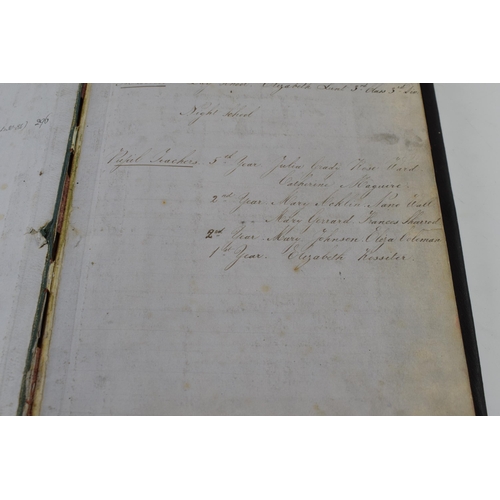 Elizabeth Hunt 3rd Class 3rd
Night School
Pupil Teachers 3rd Year Julia Grady Rose Ward
Catherine Maguire
2nd Year Mary Nohlin Jane Wall
Mary Gerrard Frances Sherrod
2nd Year Mary Johnson Eliza Coleman
1st Year. Elizabeth Rossiter